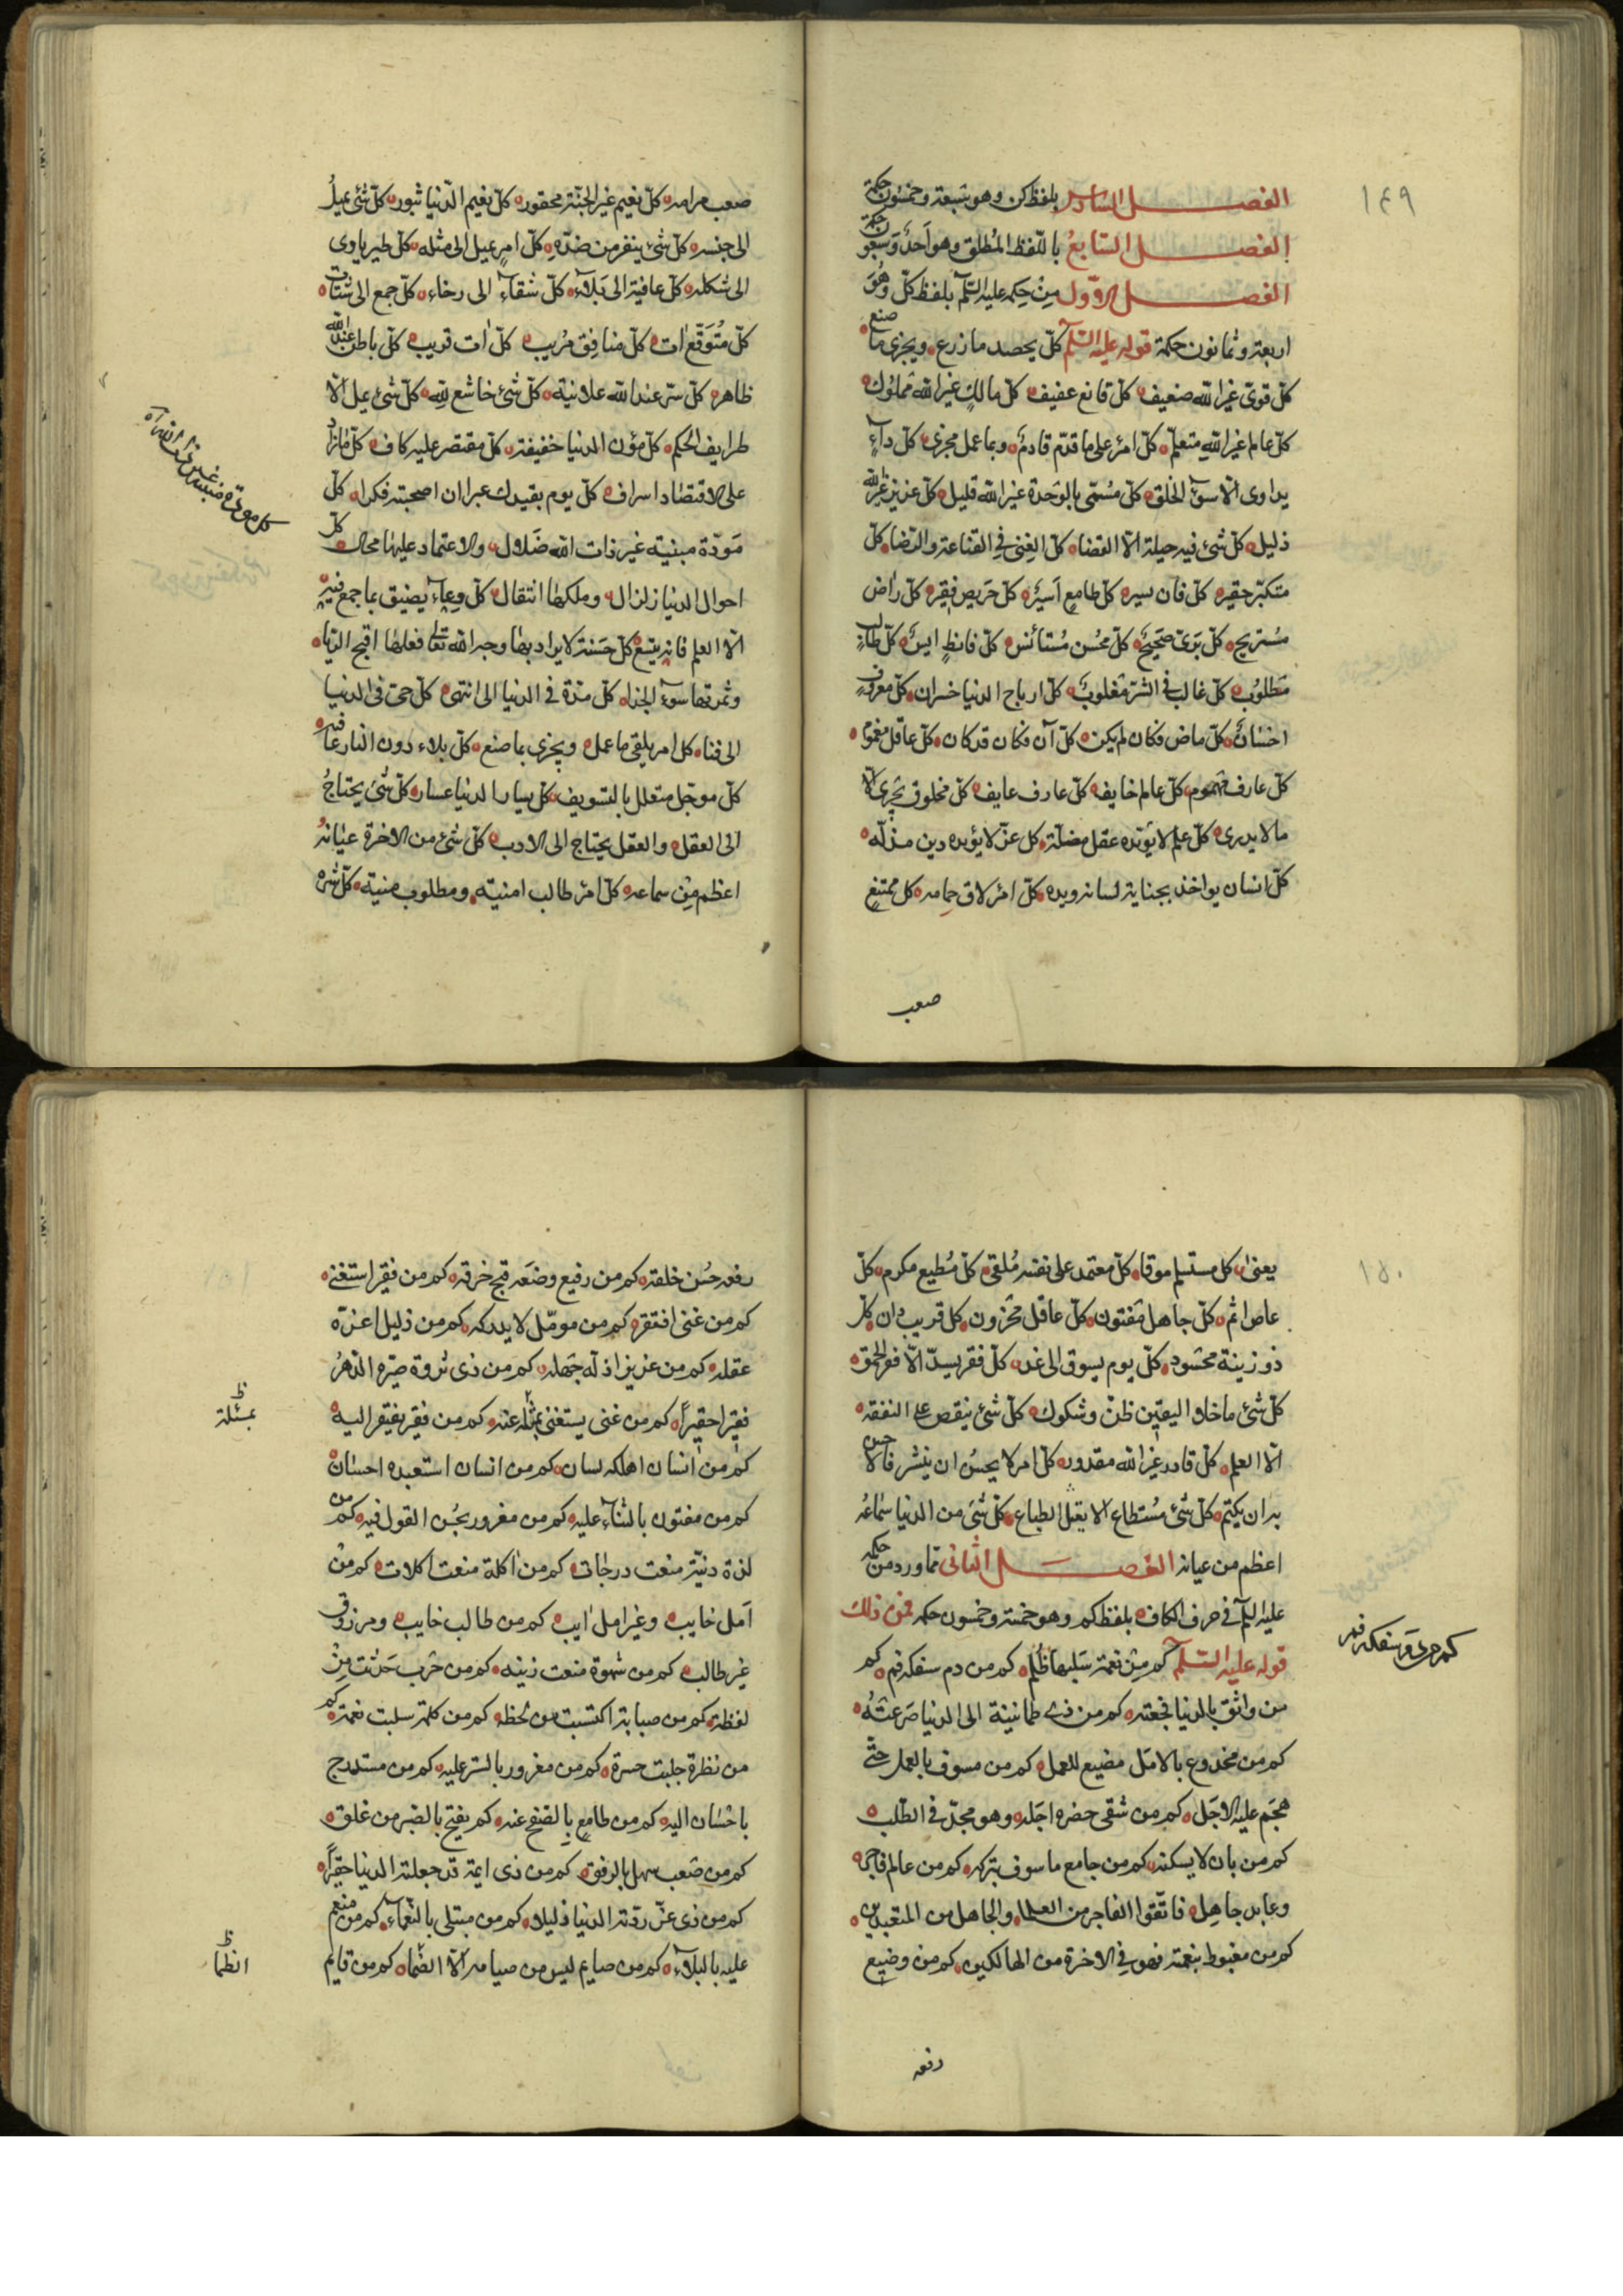 ١٤٩
الفصل السادس بلفظ كن وهو سبعة وخمسون حكمة
الفصل السابع باللفظ المطلق وهو احد وسبعو حكمة
الفصل الاوّل من حكمه عليه السلم بلفظ كلّ وهو
اربعة وثمانون حكمة قوله عليه السلم كلّ يحصد ما زرع ويجزى ما صنع
كلّ قوىّ غير الله ضعيف كلّ قانع عفيف كلّ مالك غير الله مملوك
كلّ عالم غير الله متعلّم كلّ امرئ على ما قدّم قادم وبما عمل مجزى كلّ دآء
يداوى الّا سوء الخلق كلّ مسمّى بالوحدة غير الله قليل كلّ عزيز غير الله
ذليل كلّ شئ فيه حيلة الّا القضا كلّ الغنى في القناعة والرّضا كلّ
متكبّر حقير كلّ فان يسير كلّ طامع اسير كلّ حريص فقير كلّ راض
مستريح كلّ برئ صحيح كلّ محسن مستأنس كلّ قانط ايس كلّ طالب
مطلوب كلّ غالب في الشر مغلوب كلّ ارباح الدنيا خسران كلّ معروف
احسان كلّ ماض فكان لم يكن كلّ آت فكان قد كان كلّ عاقل مغموم
كلّ عارف مهموم كلّ عالم خايف كلّ عارف عايف كلّ مخلوق يجرى الى
ما لا يدرى كلّ علم لا يؤيّده عقل مضلّة كل عزّ لا يؤيده دين مذلّه
كلّ انسان يواخذ بجناية لسانه ويده كلّ امرئ لاق حمامه كل ممتنع
صعب
صعب مرامه كلّ نعيم غير الجنّة محقور كلّ نعيم الدّنيا ثبور كلّ شئ يميل
الى جنسه كلّ شئ ينفر من ضدّه كلّ امرئ يميل الى مثله كلّ طير ياوى
الى شكله كلّ عافية الى بلآء كلّ شقآء الى رخاء كلّ جمع الى شتات
كلّ متوقّع آت كلّ منافق مريب كلّ آت قريب كلّ باطن عند الله
ظاهر كلّ سرّ عند الله علانية كلّ شئ خاشع لله كلّ شئ يمل الّا
طرايف الحكم كلّ مؤن الدنيا خفيفة كلّ مقتصر عليه كاف كلّ ما زاد
على الاقتصاد اسراف كلّ يوم يفيدك عبرا ان اصحبته فكرا كلّ
مودّة مبنية غير ذات الله ضلال والاعتماد عليها محال كلّ
احوال الدنيا زلزال وملكها انتقال كلّ وعآء يضيق بما جمع فيه
الّا العلم فانه يتسع كلّ حسنة لا يراد بها وجه الله تعالى فعلها اقبح الريا
وثمرتها سوء الجزا كلّ مدّة في الدنيا الى انتهى كلّ حى في الدنيا
الى فنا كل امر يلقى ما عمل ويجزى بما صنع كلّ بلاء دون النار عافيه
كلّ موجّل متعلل بالتسويف كلّ يسار الدنيا عسار كلّ شئ يحتاج
الى العقل والعقل يحتاج الى الادب كلّ شئ من الاخرة عيانه
اعظم من سماعه كلّ امرئ طالب امنيّة ومطلوب منية كلّ شره
١٥٠
يعنى كل مستسلم موقا كلّ معتمد على نفسه ملقى كلّ مطيع مكرم كلّ
عاص اثم كلّ جاهل مفتون كلّ عاقل محزون كلّ قريب دان كلّ
ذو زينة محسود كلّ يوم يسوق الى غد كلّ فقر يسدّ الّا فقر الحمق
كلّ شئ ما خلا اليقين ظنّ وشكوك كلّ شئ ينقص على النفقه
الّا العلم كلّ قادر غير الله مقدور كلّ امر لا يحسن ان ينشر فالاحسن
به ان يكتم كلّ شئ مستطاع الا نقل الطباع كلّ شئ من الدنيا سماعه
اعظم من عيانه الفصل الثانى مما ورد من حكمه
عليه السلم في حرف الكاف بلفظ كم وهو خمسة وخمسون حكمه فمن ذلك
قوله عليه السلم كم من نعمة سلبها ظلم كم من دم سفكه فم كم
من واثق بالدنيا فجعته كم من ذى طمانينة الى الدنيا صرعته
كم من مخدوع بالامل مضيع للعمل كم من مسوف بالعمل حتّى
هجم عليه الاجل كم من شقى حضره اجله وهو مجدّ في الطلب
كم من بان لا يسكنه كم من جامع ما سوف يتركه كم من عالم فاجر
وعابد جاهل فاتّقوا الفاجر من العلما والجاهل من المتعبدين
كم من مغبوط بنعمة فهو في الاخرة من الهالكين كم من وضيع
رفعه
رفعه حسن خلقه كم من رفيع وضعه قبح خرقه كم من فقير استغنى
كم من غنى افتقر كم من مومّل لا يدركه كم من ذليل اعزّه
عقله كم من عزيز اذلّه جهله كم من ذى ثروة صيّره الدهر
فقيرا حقيراً كم من غنى يستغنى بمثله عنه كم من فقير يفتقر اليه
بمثله ظ
كم من انسان اهلكه لسان كم من انسان استعبده احسان
كم من مفتون بالثنآء عليه كم من مغرور بحسن القول فيه كم من
لذة دنيّة منعت درجات كم من اكلة منعت اكلات كم من
امل خايب وغير امل آيب كم من طالب خايب ومرزوق
غير طالب كم من شهوة منعت زينه كم من حرب حدثت من
لفظة كم من صبابة اكتسبت من لحظه كم من كلمة سلبت نعمة كم
من نظرة جلبت حسرة كم من مغرور بالستر عليه كم من مستدرج
باحسان اليه كم من طامع بالصفح عنه كم يفتح بالصبر من غلق
كم من صعب سهل بالرفق كم من ذى ابهة قد جعلته الدنيا حقيراً
كم من ذى عزّ ردّته الدنيا ذليلا كم من مبتلى بالنعمآء كم من منعم
عليه بالبلآء كم من صايم ليس من صيامه الّا الضما كم من قايم
الظما ظ